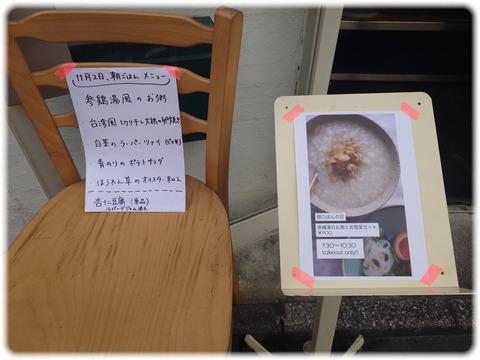 11月2日、朝ごはん メニュー
参鶏湯風のお粥
台湾風 切り干し大根の卵焼き
白菜のラーパーツァイ
青のりのポテトサラダ
ほうれん草のオイスター和え
杏仁豆腐 (単品)
朝ごはんの日
参鶏湯のお粥とお惣菜セット
¥900
7:30〜10:30
takeout only!!